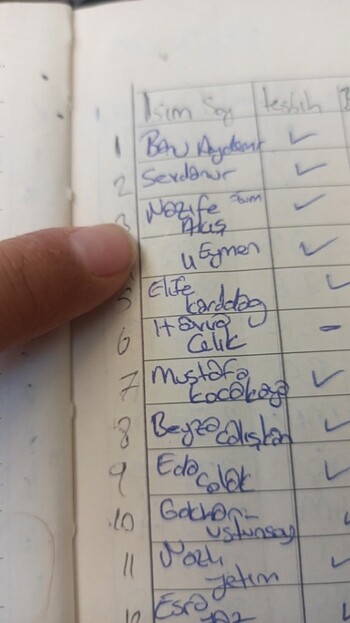 İsim Soy tesbih
1 Banu Aydemir ✓
2 Serdanur ✓
3 Nazife ✓
Akış
4 Eymen ✓
5 Elife ✓
Kardalaş
6 Havva -
Çelik
7 Mustafa ✓
Kocakaya
8 Beyza Çalışkan ✓
9 Eda ✓
Çolak
10 Gökhan ✓
Üstünsoy
11 Nazlı ✓
Yetim
12 Esra ✓